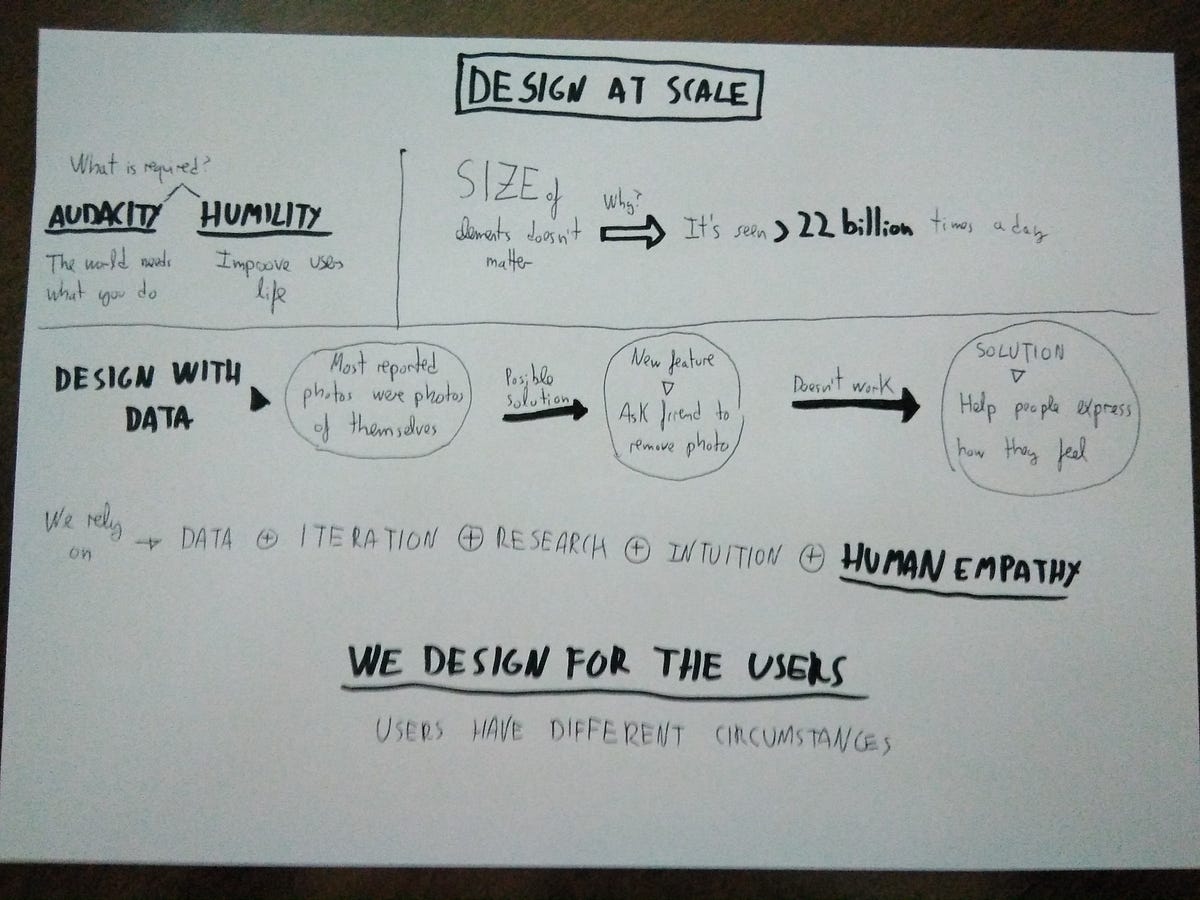 DESIGN AT SCALE
What is required?
AUDACITY HUMILITY
The world needs
what you do
Improove users
life
SIZE of
elements doesn't
matter
Why?
It's seen > 22 billion times a day
DESIGN WITH
DATA
Most reported
photos were photos
of themselves
Posible
solution
New feature
Ask friend to
remove photo
Doesn't work
SOLUTION
Help people express
how they feel
We rely
on → DATA + ITERATION + RESEARCH + INTUITION + HUMAN EMPATHY
WE DESIGN FOR THE USERS
USERS HAVE DIFFERENT CIRCUMSTANCES